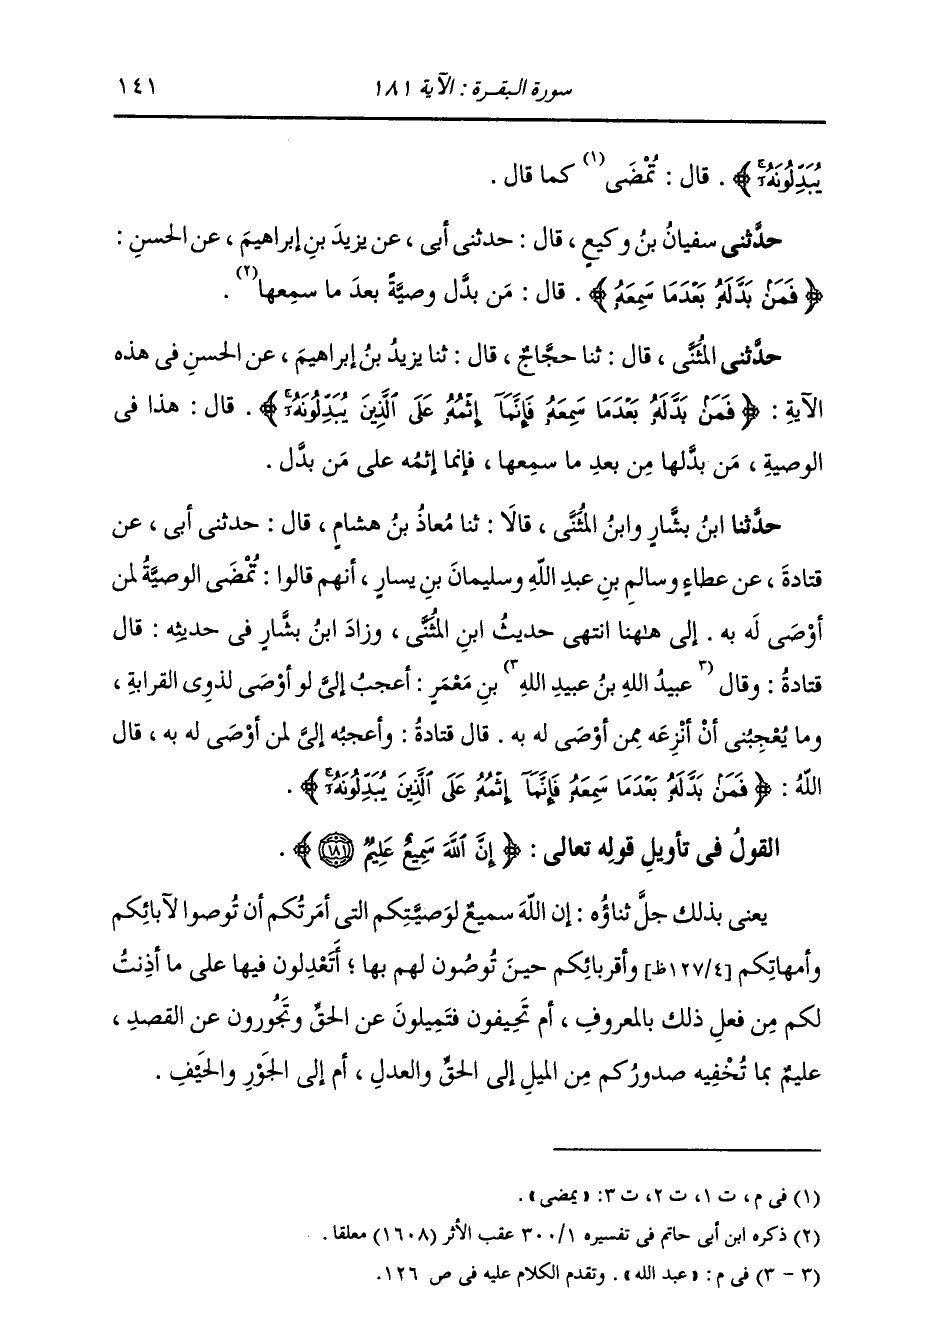 سورة البقرة : الآية ١٨١ ١٤١
يُبَدِّلُونَهُۥٓ ﴾ . قال : تُمْضَى(١) كما قال .
حدَّثنى سفيانُ بنُ وكيعٍ ، قال : حدثنى أبى ، عن يزيدَ بنِ إبراهيمَ ، عن الحسنِ :
﴿ فَمَنۢ بَدَّلَهُۥ بَعْدَمَا سَمِعَهُۥ ﴾ . قال : مَن بدَّل وصيَّةً بعدَ ما سمِعها(٢) .
حدَّثنى المُثَنَّى ، قال : ثنا حجَّاجٌ ، قال : ثنا يزيدُ بنُ إبراهيمَ ، عن الحسنِ فى هذه
الآيةِ : ﴿ فَمَنۢ بَدَّلَهُۥ بَعْدَمَا سَمِعَهُۥ فَإِنَّمَآ إِثْمُهُۥ عَلَى ٱلَّذِينَ يُبَدِّلُونَهُۥٓ ﴾ . قال : هذا فى
الوصيةِ ، مَن بدَّلها مِن بعدِ ما سمِعها ، فإنما إثمُه على مَن بدَّل .
حدَّثنا ابنُ بشَّارٍ وابنُ المُثَنَّى ، قالَا : ثنا مُعاذُ بنُ هشامٍ ، قال : حدثنى أبى ، عن
قتادةَ ، عن عطاءٍ وسالمِ بنِ عبدِ اللَّهِ وسليمانَ بنِ يسارٍ ، أنهم قالوا : تُمْضَى الوصيَّةُ لمن
أوْصَى لَه به . إلى هلهنا انتهى حديثُ ابنِ المُثَنَّى ، وزادَ ابنُ بشَّارٍ فى حديثِه : قال
قتادةُ : وقال (٣ عبيدُ اللهِ بنُ عبيدِ اللهِ ٣) بنِ مَعْمَرٍ : أعجبُ إلىَّ لو أوْصَى لذوِى القرابةِ ،
وما يُعْجِبُنى أنْ أنْزِعَه ممن أوْصَى له به . قال قتادةُ : وأعجبُه إلىَّ لمن أوْصَى له به ، قال
اللَّهُ : ﴿ فَمَنۢ بَدَّلَهُۥ بَعْدَمَا سَمِعَهُۥ فَإِنَّمَآ إِثْمُهُۥ عَلَى ٱلَّذِينَ يُبَدِّلُونَهُۥٓ ﴾ .
القولُ فى تأويلِ قولِه تعالى : ﴿ إِنَّ ٱللَّهَ سَمِيعٌ عَلِيمٌ ١٨١ ﴾ .
يعنى بذلك جلَّ ثناؤُه : إن اللَّهَ سميعٌ لوَصيَّتِكم التى أمَرتُكم أن تُوصوا لآبائِكم
وأمهاتِكم [١٢٧/٤ظ] وأقربائِكم حينَ تُوصُون لهم بها ؛ أَتَعْدِلون فيها على ما أذِنتُ
لكم مِن فعلِ ذلك بالمعروفِ ، أم تَحِيفون فتَمِيلونَ عن الحقِّ وتَجُورون عن القصدِ ،
عليمٌ بما تُخْفِيه صدورُكم مِن الميلِ إلى الحقِّ والعدلِ ، أم إلى الجَوْرِ والحَيْفِ .
(١) فى م، ت ١، ت ٢، ت ٣: «يمضى» .
(٢) ذكره ابن أبى حاتم فى تفسيره ٣٠٠/١ عقب الأثر (١٦٠٨) معلقا .
(٣ - ٣) فى م : «عبد الله» . وتقدم الكلام عليه فى ص ١٢٦.